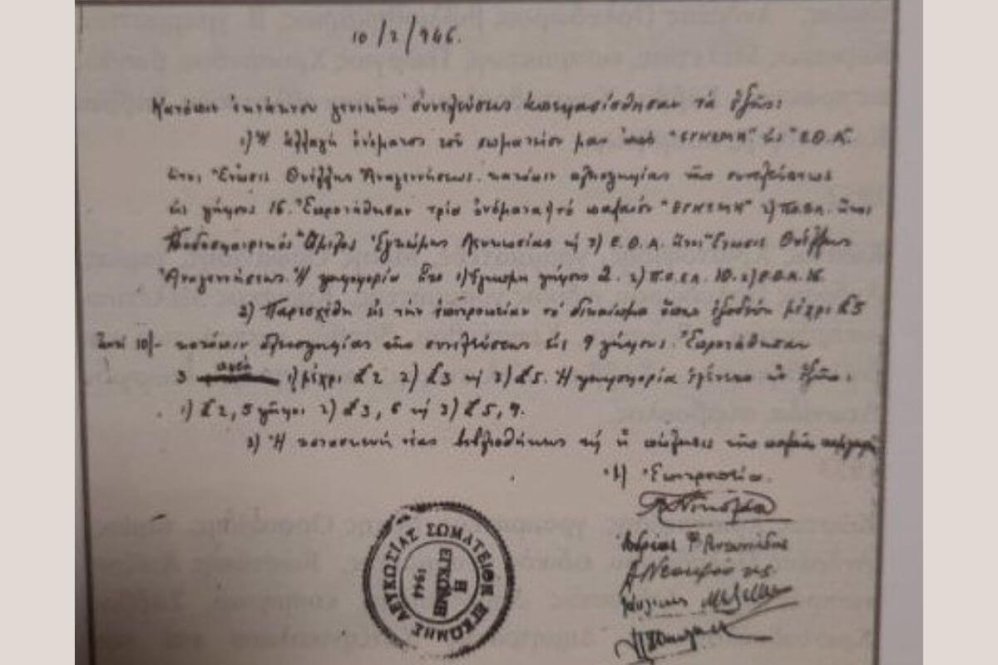 10/2/946.
Κατόπιν ἐκτάκτου γενικῆς συνελεύσεως ἀπεφασίσθησαν τὰ ἑξῆς:
1) Ἡ ἀλλαγὴ ὀνόματος τοῦ σωματείου μας ἀπὸ "ΕΓΚΩΜΗ" εἰς "Ε.Θ.Α."
ἤτοι Ἕνωσις Θυέλλης Ἀναγεννήσεως κατόπιν πλειοψηφίας τῆς συνελεύσεως
εἰς ψήφους 16. Ἐπροτάθησαν τρία ὀνόματα τὸ παλαιόν "ΕΓΚΩΜΗ" 2) Π.Ο.Ε.Λ. ἤτοι
Ποδοσφαιρικός Ὅμιλος Ἐγκώμης Λευκωσίας καὶ 3) Ε.Θ.Α. ἤτοι Ἕνωσις Θυέλλης
Ἀναγεννήσεως. Ἡ ψηφοφορία 1) Ἔγκωμη ψήφους 2. 2) Π.Ο.Ε.Λ. 10. 3) Ε.Θ.Α. 16
2) Παρεσχέθη εἰς τὴν ἐπιτροπείαν τὸ δικαίωμα ὅπως ἐξοδεύῃ μέχρι £5
ἀντὶ 10/- κατόπιν πλειοψηφίας τῆς συνελεύσεως εἰς 9 ψήφους. Ἐπροτάθησαν
3 1) μέχρι £2 2) £3 καὶ 3) £5. Ἡ ψηφοφορία ἐγένετο ὡς ἑξῆς:
1) £2, 5 ψῆφοι 2) £3, 6 καὶ 3) £5, 9.
3) Ἡ κατασκευὴ νέας βιβλιοθήκης καὶ ἡ πώλησις τῆς παλαιᾶς
Ἡ Ἐπιτροπεία.
ΣΩΜΑΤΕΙΟΝ ΕΓΚΩΜΗΣ ΛΕΥΚΩΣΙΑΣ
Η
ΕΓΚΩΜΗ
1944